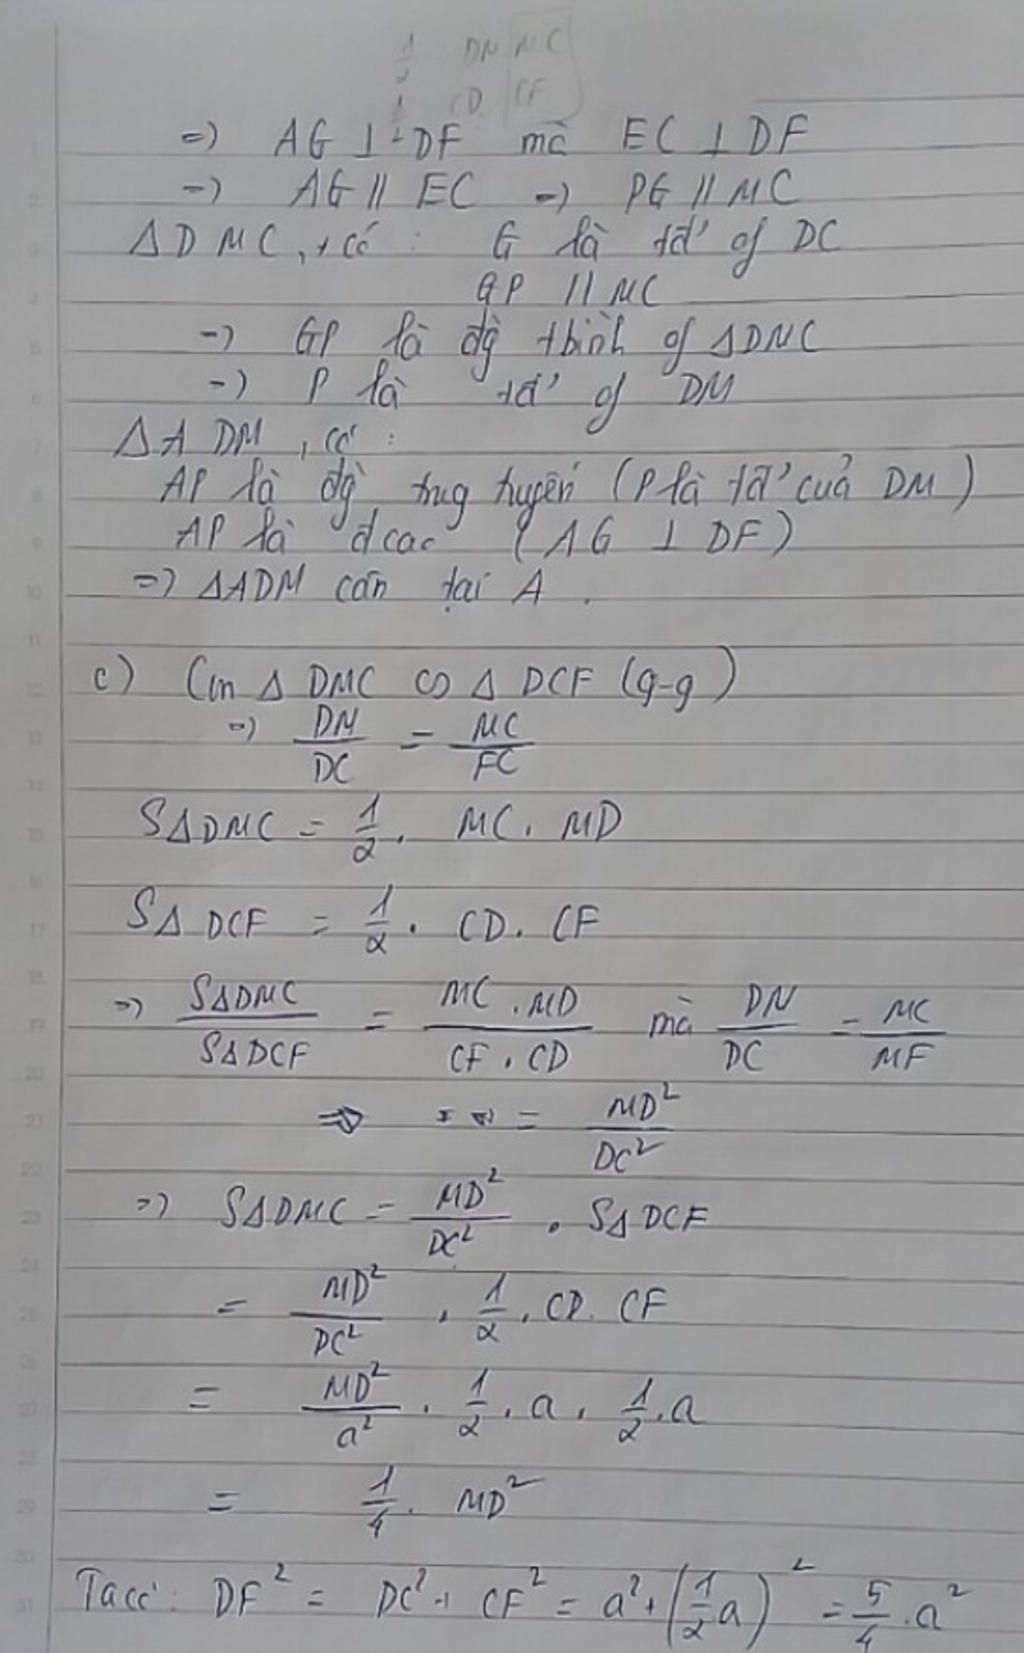 1/2 DM MC
1/2 CD CF
=) AG ⊥ DF mà EC ⊥ DF
=) AG // EC =) PG // MC
ΔDMC, có : G là tđ' of DC
GP // MC
=) GP là đg tbình of ΔDMC
=) P là tđ' of DM
ΔADM, có :
AP là đg' trug tuyến (P là tđ' của DM)
AP là đcao (AG ⊥ DF)
=) ΔADM cân tại A.
c) Cm ΔDMC ∽ ΔDCF (g-g)
=) DM/DC = MC/FC
SΔDMC = 1/2 . MC . MD
SΔDCF = 1/2 . CD . CF
=) SΔDMC/SΔDCF = MC . MD/CF . CD mà DM/DC = MC/MF
=> = MD²/DC²
=) SΔDMC = MD²/DC² . SΔDCF
= MD²/DC² . 1/2 . CD . CF
= MD²/a² . 1/2 . a . 1/2 . a
= 1/4 . MD²
Ta có : DF² = DC² + CF² = a² + (1/2 a)² = 5/4 . a²